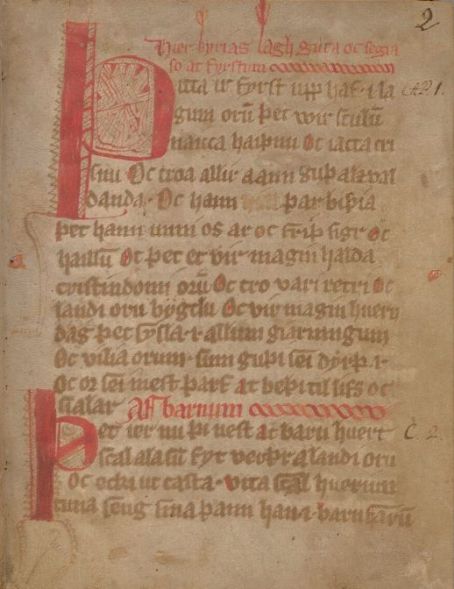 2
Hier byrias lagh guta oc segia
so at fyrstum
Þitta ir fyrst upp haf · i la CAP. 1.
gum orū þet wir sculū
naicca haiþnu Oc iatta cri
snu Oc troa allir a ann guþ ala val
danda · Oc hann þar biþia
þet hann unni os ar oc friþ sigr oc
hailsū Oc þet et vir magin halda
cristindomi orū Oc tro vari retri Oc
landi oru bygdu Oc vir magin huern
dag þet sysla · i · allum giarningum
Oc vilia orum · sum guþi sei dyrþ · i ·
Oc os sei mest þarf at beþi til lifs oc
sialar Af barnum
Þet ier nu þi nest at barn huert C. 2.
scal ala sū fyt verþr a landi oru
Oc ecki ut casta · vita scal huerium
cuna seng sina þann han · i · barnfarū